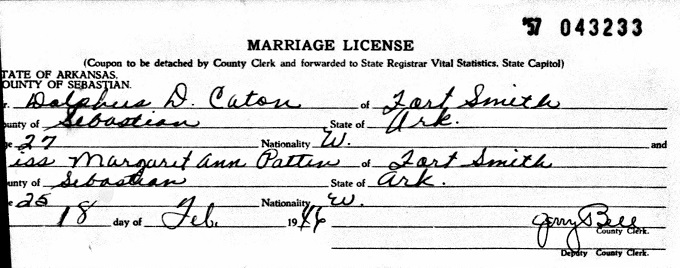 '57 043233
MARRIAGE LICENSE
(Coupon to be detached by County Clerk and forwarded to State Registrar Vital Statistics, State Capitol)
TATE OF ARKANSAS,
OUNTY OF SEBASTIAN.
r. Dolphus D. Caton of Fort Smith
ounty of Sebastian State of Ark.
e 27 Nationality W. and
iss Margaret Ann Patten of Fort Smith
unty of Sebastian State of Ark.
e 25 Nationality W.
18 day of Feb. 1946
Jerry Bell
County Clerk.
Deputy County Clerk.